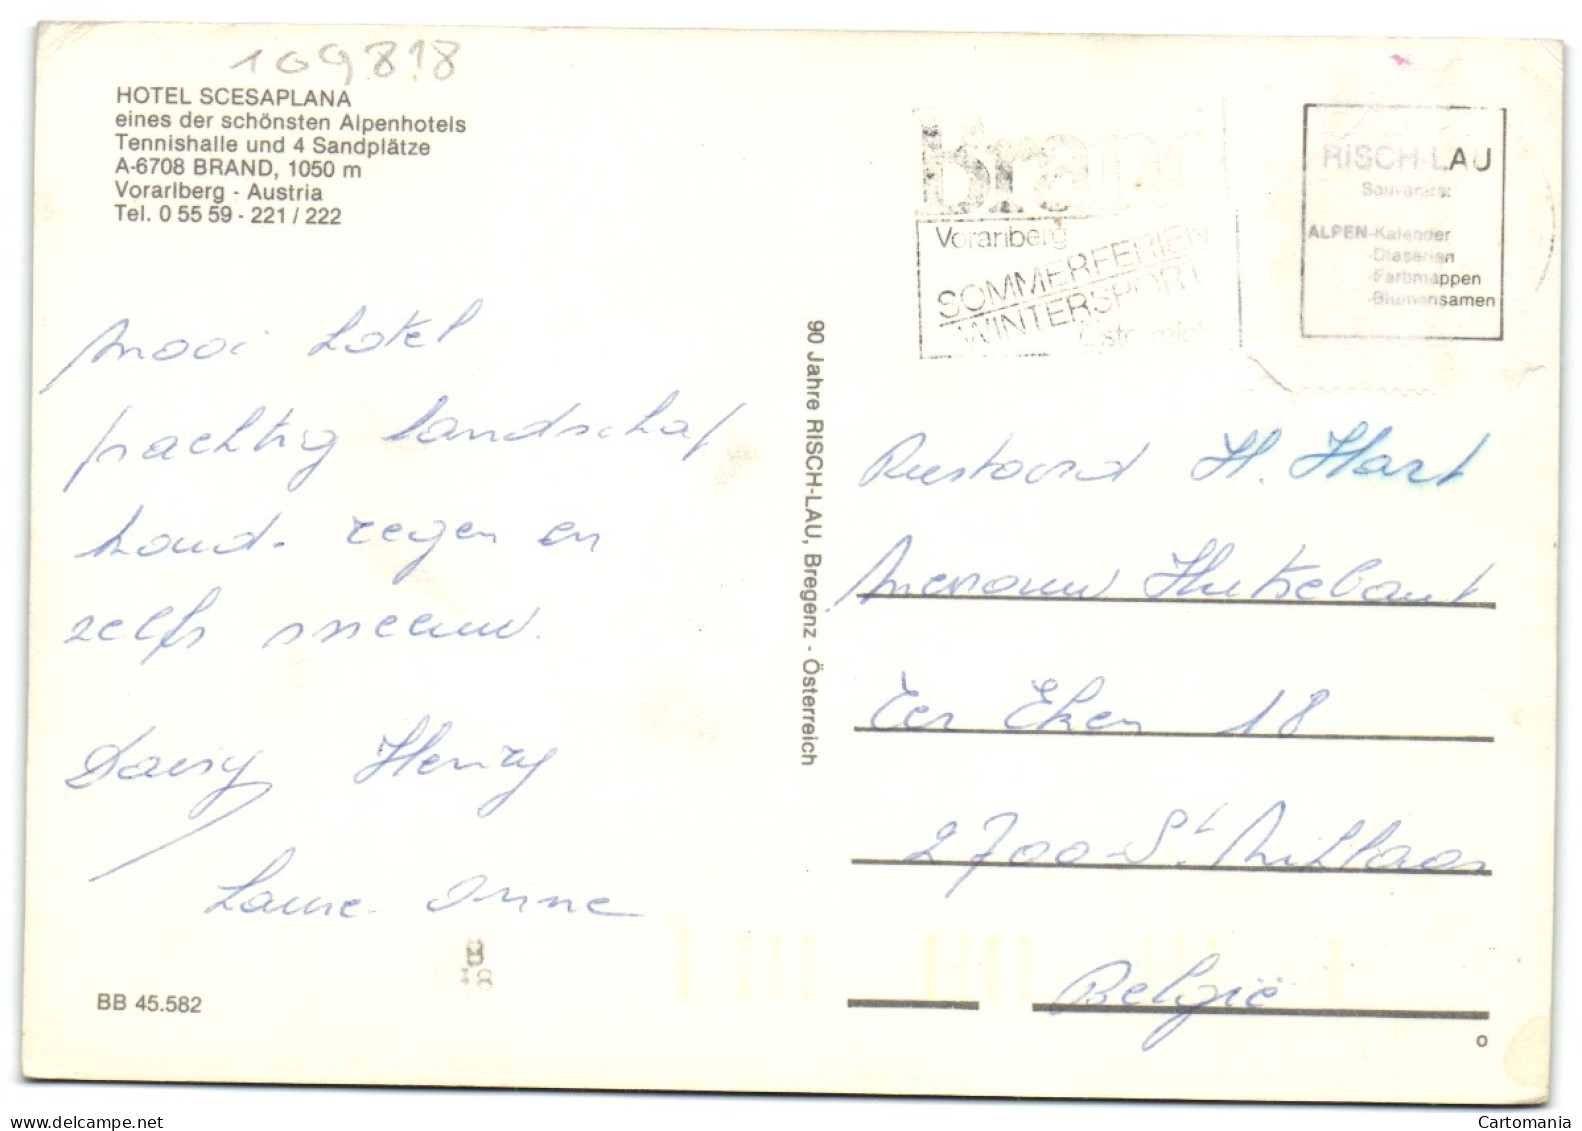 109818
HOTEL SCESAPLANA
eines der schönsten Alpenhotels
Tennishalle und 4 Sandplätze
A-6708 BRAND, 1050 m
Vorarlberg - Austria
Tel. 0 55 59 - 221 / 222
Mooi hotel
prachtig landschap
koud. regen en
zelfs sneeuw.
Daisy Henry
Laure-Anne
BB 45.582
90 Jahre RISCH-LAU, Bregenz - Österreich
Brand
Vorarlberg
SOMMERFERIEN
WINTERSPORT
Österreich
RISCH-LAU
Souvenirs:
ALPEN-Kalender
-Diaserien
-Farbmappen
-Blumensamen
Rustoord H. Hart
Mevrouw Hutsebaut
Ter Eken 18
2700 - St. Niklaas
België
o
Cartomania